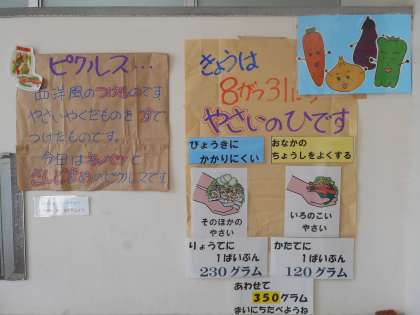 ピクルス…
西洋風のつけものです
やさいやくだものをすで
つけたものです。
今日はキャベツと
のピクルスです
きょうは
8がつ31にち
やさいのひです
びょうきに
かかりにくい
おなかの
ちょうしをよくする
そのほかの
やさい
いろのこい
やさい
りょうてに
1ぱいぶん
230グラム
かたてに
1ぱいぶん
120グラム
あわせて
350グラム
まいにちたべようね